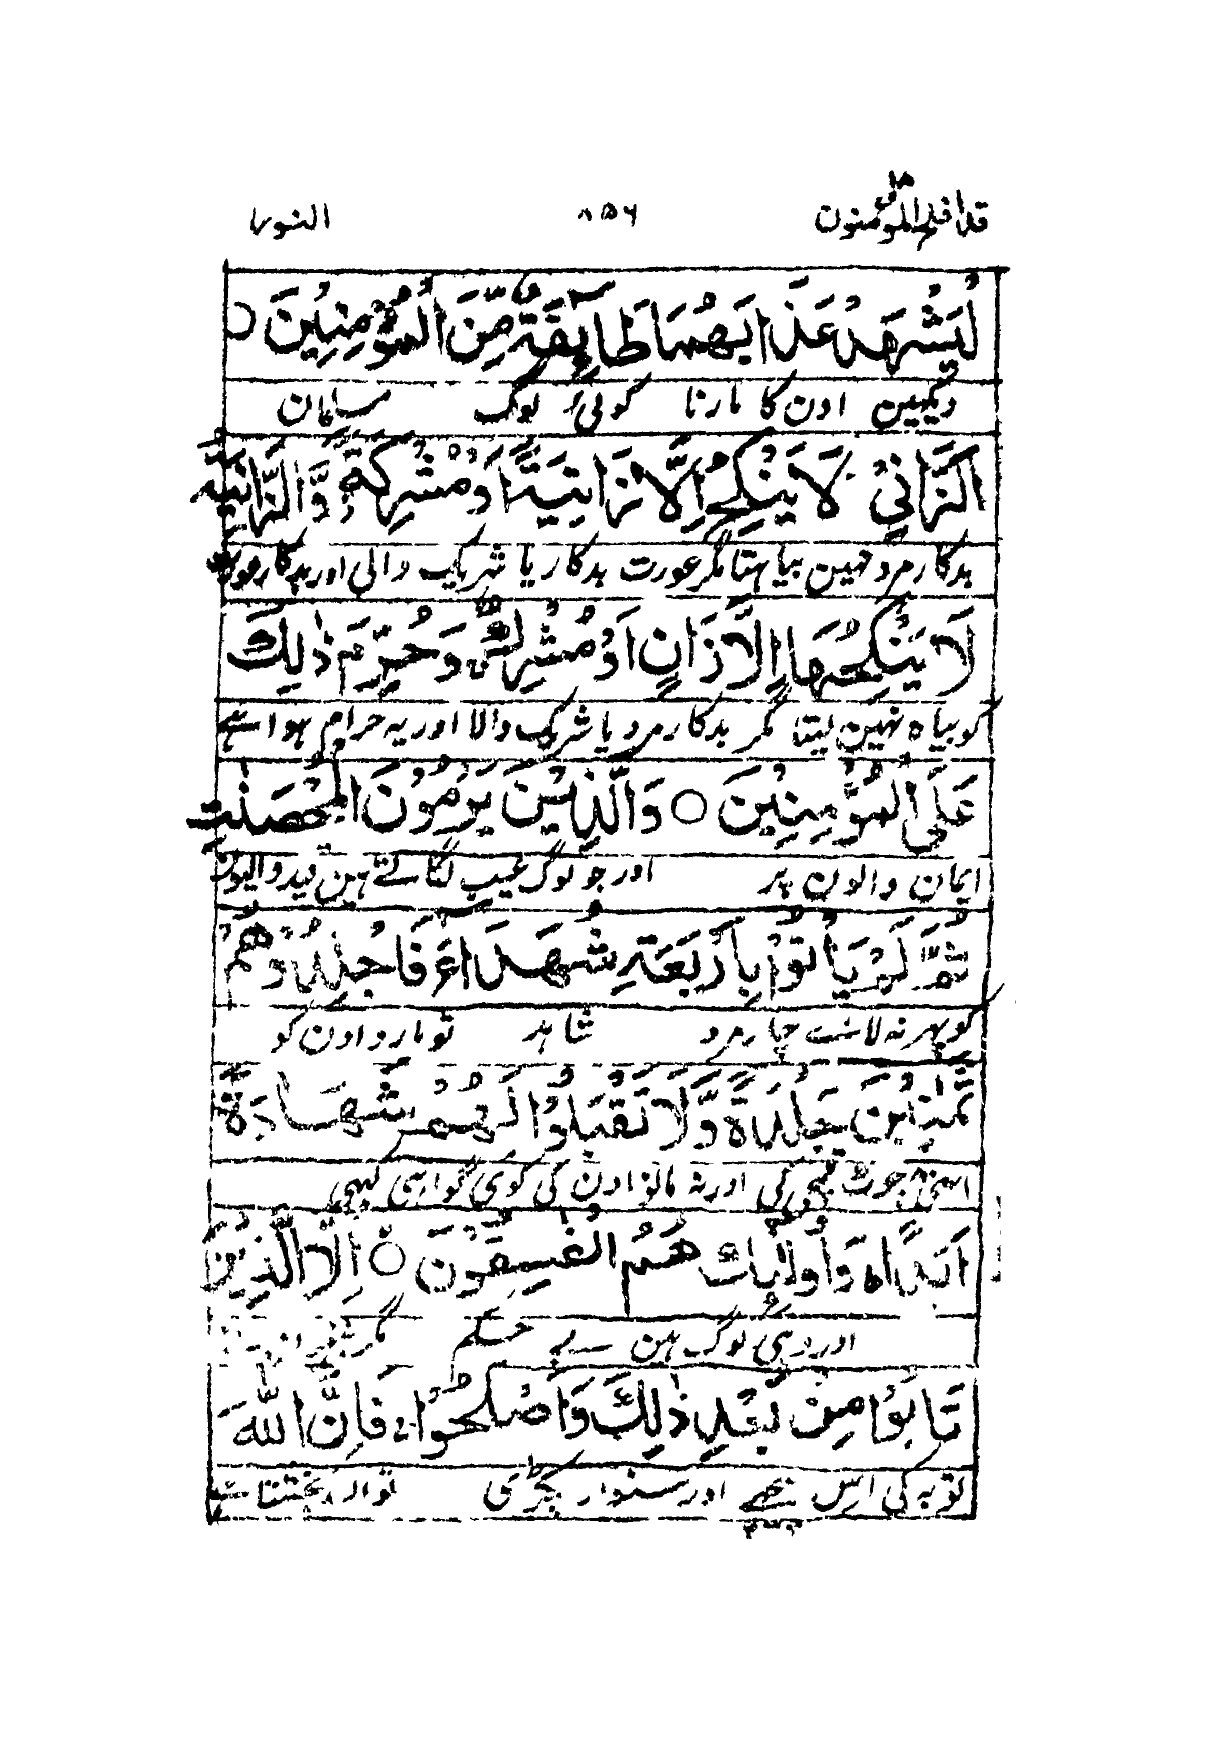 قد افلح المؤمنون ١٨ ٨٥٦ النور
لْيَشْهَدْ عَذَابَهُمَا طَآئِفَةٌ مِّنَ الْمُؤْمِنِيْنَ ○
دیکہین اون کا مارنا کوئی لوگ مسلمان
اَلزَّانِيْ لَا يَنْكِحُ اِلَّا زَانِيَةً اَوْ مُشْرِكَةً وَّالزَّانِيَةُ
بدکار مرد نہین بیاہتا مگر عورت بدکار یا شریک والی اور بدکار عورت
لَا يَنْكِحُهَا اِلَّا زَانٍ اَوْ مُشْرِكٌ وَحُرِّمَ ذٰلِكَ
کو بیاہ نہین لیتا مگر بدکار مرد یا شریک والا اور یہ حرام ہوا ہے
عَلَى الْمُؤْمِنِيْنَ ○ وَالَّذِيْنَ يَرْمُوْنَ الْمُحْصَنٰتِ
ایمان والون پر اور جو لوگ عیب لگاتے ہین قید والیون
ثُمَّ لَمْ يَاْتُوْا بِاَرْبَعَةِ شُهَدَآءَ فَاجْلِدُوْهُمْ
کو پہر نہ لائے چار مرد شاہد تو مارو اون کو
ثَمٰنِيْنَ جَلْدَةً وَّلَا تَقْبَلُوْا لَهُمْ شَهَادَةً
اسّی چوٹ قمچی کی اور نہ مانو اون کی کوی گواہی کبہی
اَبَدًا ۚ وَاُولٰٓئِكَ هُمُ الْفٰسِقُوْنَ ○ اِلَّا الَّذِيْنَ
اور وہی لوگ ہین بے حکم مگر
تَابُوْا مِنْ بَعْدِ ذٰلِكَ وَاَصْلَحُوْا ۚ فَاِنَّ اللّٰهَ
توبہ کی اس پیچھے اور سنوار پکڑی تو اللہ بخشتا ہے